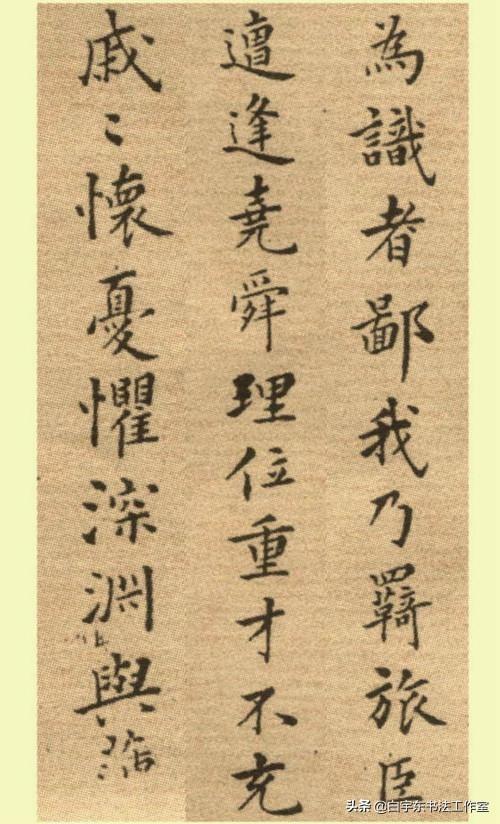 為識者鄙我乃羇旅臣
遭逢堯舜理位重才不充
戚〻懷憂懼深淵與
头条 @白宇东书法工作室